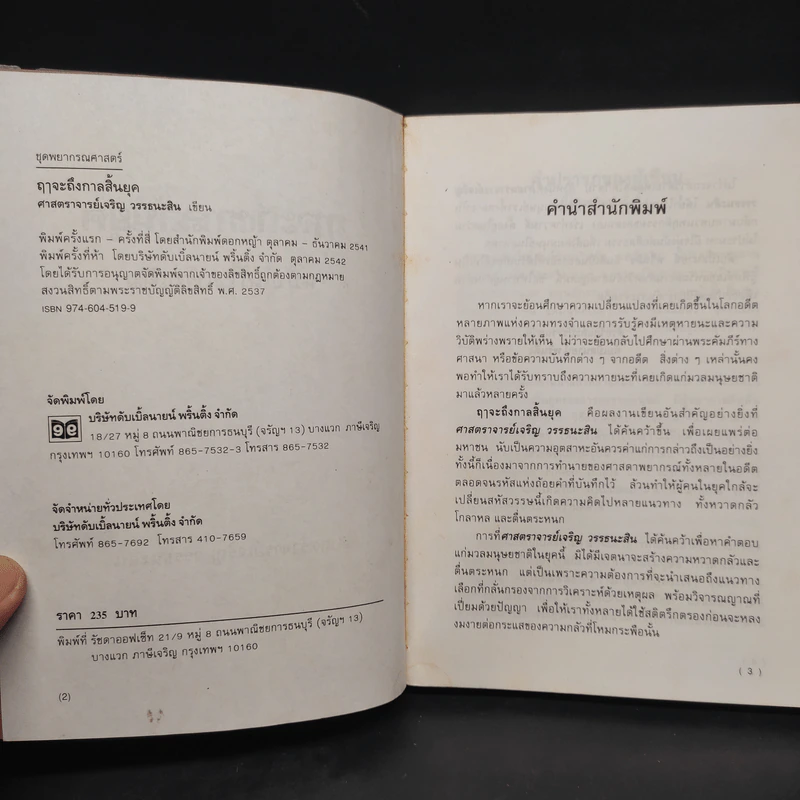 ชุดพยากรณศาสตร์
ฤๅจะถึงกาลสิ้นยุค
ศาสตราจารย์เจริญ วรรธนะสิน เขียน
พิมพ์ครั้งแรก – ครั้งที่สี่ โดยสำนักพิมพ์ดอกหญ้า ตุลาคม – ธันวาคม 2541
พิมพ์ครั้งที่ห้า โดยบริษัทดับเบิ้ลนายน์ พริ้นติ้ง จำกัด ตุลาคม 2542
โดยได้รับการอนุญาตจัดพิมพ์จากเจ้าของลิขสิทธิ์ถูกต้องตามกฎหมาย
สงวนสิทธิ์ตามพระราชบัญญัติลิขสิทธิ์ พ.ศ. 2537
ISBN 974-604-519-9
จัดพิมพ์โดย
บริษัทดับเบิ้ลนายน์ พริ้นติ้ง จำกัด
18/27 หมู่ 8 ถนนพาณิชยการธนบุรี (จรัญฯ 13) บางแวก ภาษีเจริญ
กรุงเทพฯ 10160 โทรศัพท์ 865-7532-3 โทรสาร 865-7532
จัดจำหน่ายทั่วประเทศโดย
บริษัทดับเบิ้ลนายน์ พริ้นติ้ง จำกัด
โทรศัพท์ 865-7692 โทรสาร 410-7659
ราคา 235 บาท
พิมพ์ที่ รัชดาออฟเซ็ท 21/9 หมู่ 8 ถนนพาณิชยการธนบุรี (จรัญฯ 13)
บางแวก ภาษีเจริญ กรุงเทพฯ 10160
(2)
คำนำสำนักพิมพ์
หากเราจะย้อนศึกษาความเปลี่ยนแปลงที่เคยเกิดขึ้นในโลกอดีต
หลายภาพแห่งความทรงจำและการรับรู้คงมีเหตุหายนะและความ
วิบัติพร่างพรายให้เห็น ไม่ว่าจะย้อนกลับไปศึกษาผ่านพระคัมภีร์ทาง
ศาสนา หรือข้อความบันทึกต่าง ๆ จากอดีต สิ่งต่าง ๆ เหล่านั้นคง
พอทำให้เราได้รับทราบถึงความหายนะที่เคยเกิดแก่มวลมนุษยชาติ
มาแล้วหลายครั้ง
ฤๅจะถึงกาลสิ้นยุค คือผลงานเขียนอันสำคัญอย่างยิ่งที่
ศาสตราจารย์เจริญ วรรธนะสิน ได้ค้นคว้าขึ้น เพื่อเผยแพร่ต่อ
มหาชน นับเป็นความอุตสาหะอันควรค่าแก่การกล่าวถึงเป็นอย่างยิ่ง
ทั้งนี้ก็เนื่องมาจากการทำนายของศาสดาพยากรณ์ทั้งหลายในอดีต
ตลอดจนรหัสแห่งถ้อยคำที่บันทึกไว้ ล้วนทำให้ผู้คนในยุคใกล้จะ
เปลี่ยนสหัสวรรษนี้เกิดความคิดไปหลายแนวทาง ทั้งหวาดกลัว
โกลาหล และตื่นตระหนก
การที่ศาสตราจารย์เจริญ วรรธนะสิน ได้ค้นคว้าเพื่อหาคำตอบ
แก่มวลมนุษยชาติในยุคนี้ มิได้มีเจตนาจะสร้างความหวาดกลัวและ
ตื่นตระหนก แต่เป็นเพราะความต้องการที่จะนำเสนอถึงแนวทาง
เลือกที่กลั่นกรองจากการวิเคราะห์ด้วยเหตุผล พร้อมวิจารณญาณที่
เปี่ยมด้วยปัญญา เพื่อให้เราทั้งหลายได้ใช้สติตรึกตรองก่อนจะหลง
งมงายต่อกระแสของความกลัวที่โหมกระพือนั้น
(3)